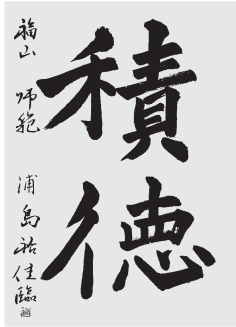 積徳
福山 師範 浦島祐佳臨